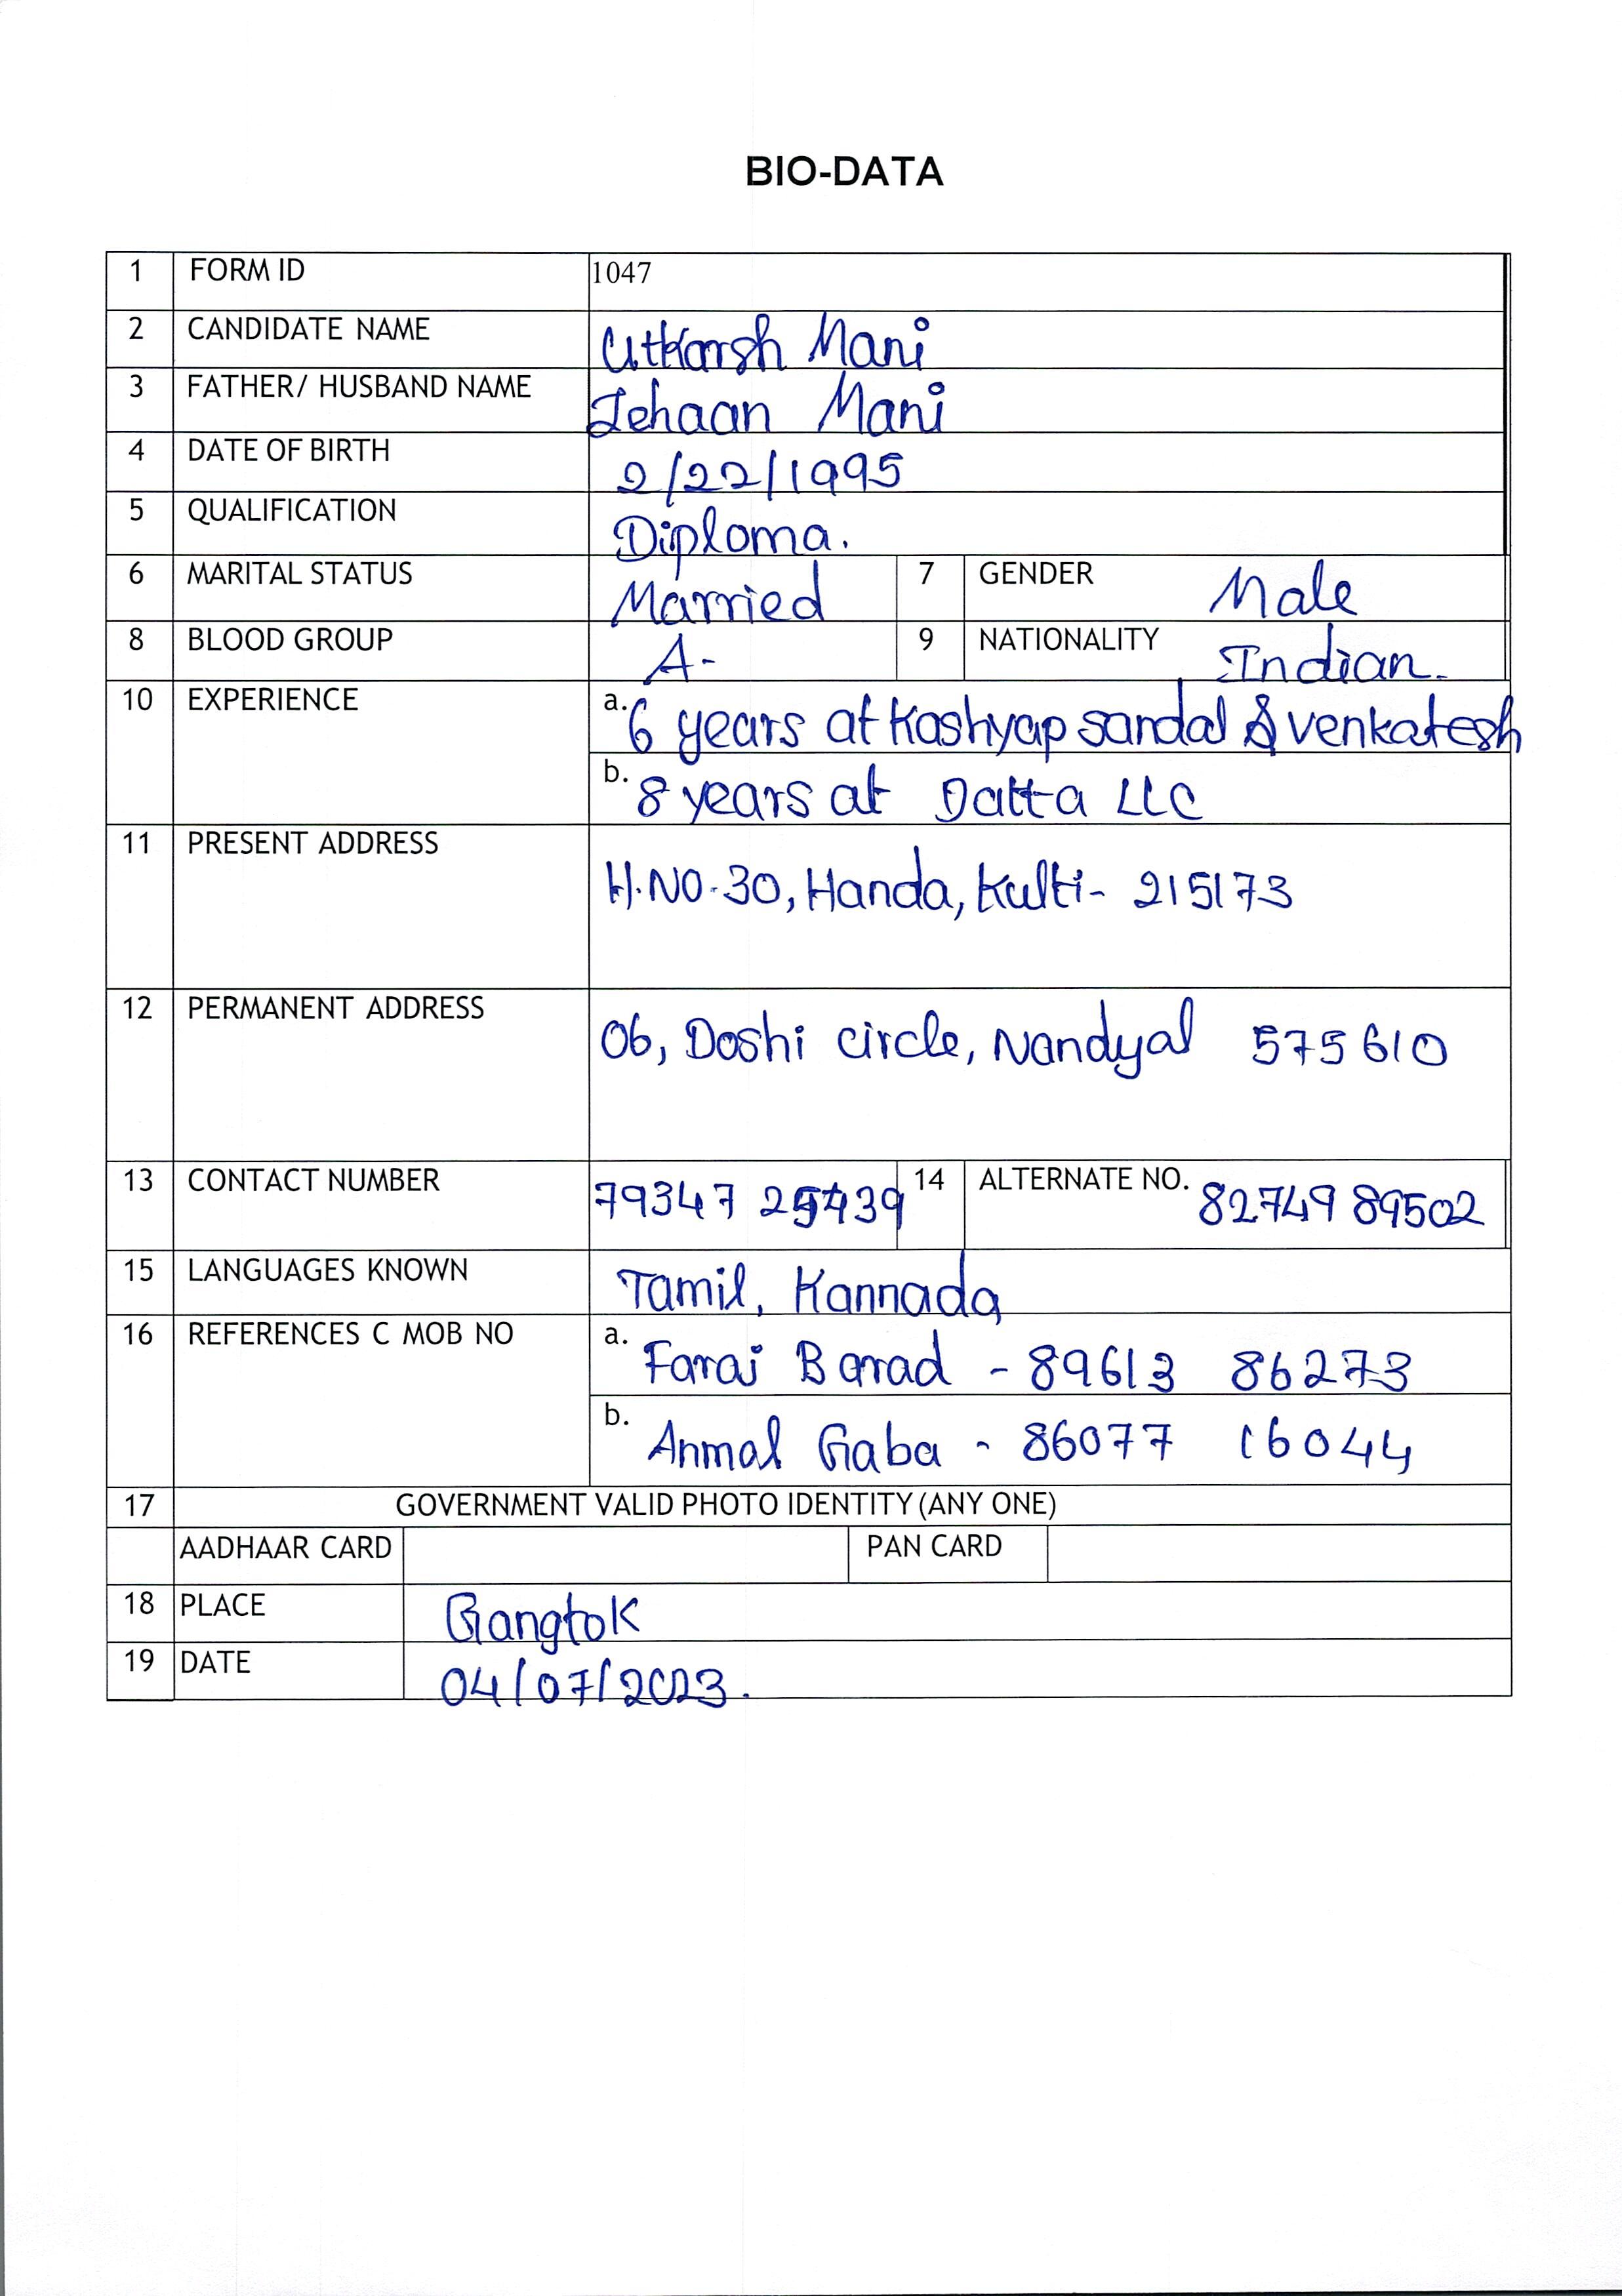 BIO-DATA
1 FORM ID 1047
2 CANDIDATE NAME Utkarsh Mani
3 FATHER/ HUSBAND NAME Jehaan Mani
4 DATE OF BIRTH 2/22/1995
5 QUALIFICATION Diploma.
6 MARITAL STATUS Married 7 GENDER Male
8 BLOOD GROUP A- 9 NATIONALITY Indian.
10 EXPERIENCE a. 6 years at Kashyap sandal & venkatesh
b. 8 years at Datta LLC
11 PRESENT ADDRESS
H.NO-30, Handa, Kulti- 215173
12 PERMANENT ADDRESS
06, Doshi circle, Nandyal 575610
13 CONTACT NUMBER 79347 14 ALTERNATE NO. 82749 89502
15 LANGUAGES KNOWN Tamil, Kannada
16 REFERENCES C MOB NO a. Faraj Barad - 89613 86273
b. Anmal Gaba - 86077 16044
17 GOVERNMENT VALID PHOTO IDENTITY (ANY ONE)
AADHAAR CARD PAN CARD
18 PLACE Gangtok
19 DATE 04/07/2023.